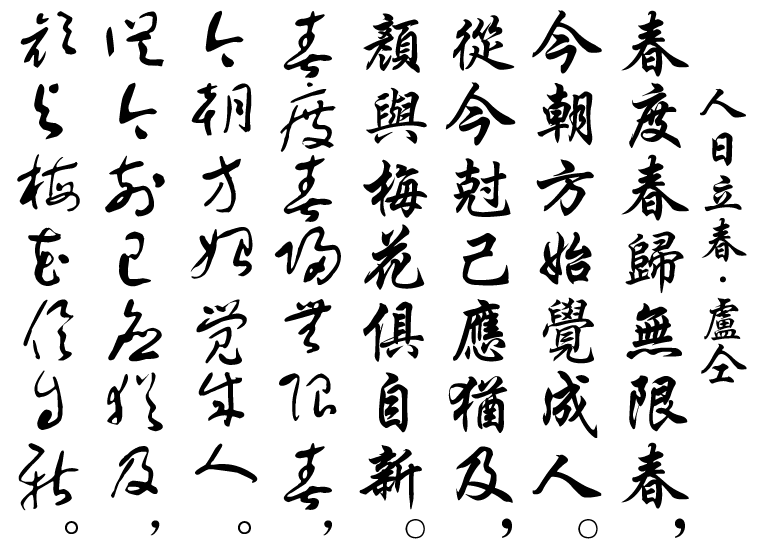 人日立春·盧仝
春度春歸無限春，
今朝方始覺成人。
從今尅己應猶及，
顏與梅花俱自新。
春度春歸無限春，
今朝方始覺成人。
從今尅己應猶及，
顏與梅花俱自新。